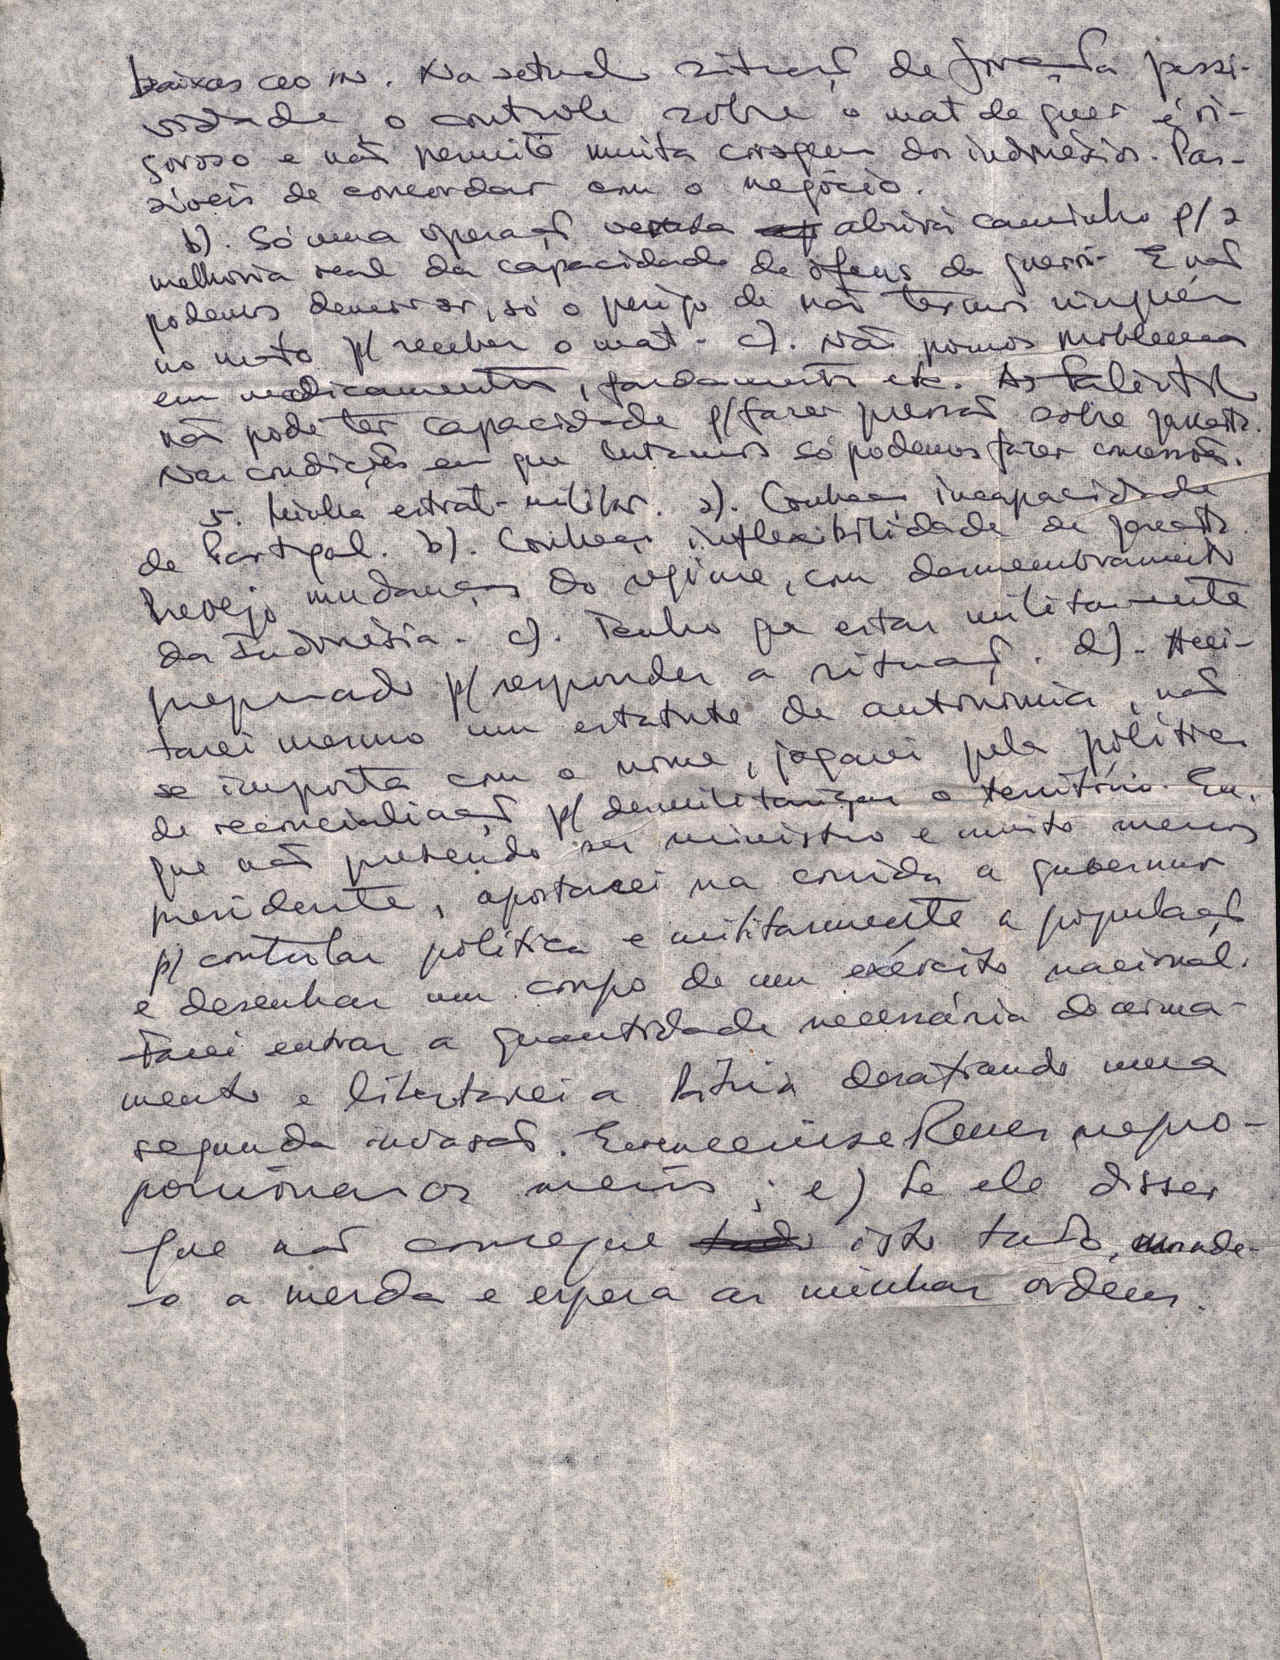 baixas ao in. Na actual situaçã de forçada passi-
vidade o controle sobre o mat de guer é ri-
goroso e nã permite muita coragem dos indonésios. Pas-
síveis de concordar com o negócio.
b). Só uma operaçã abrirá caminho p/ a
melhoria real da capacidade de ofens de guerri. E nã
podemos demorar, só o perigo de nã termos ninguém
no mato p/ receber o mat. c). Nã pomos problemas
em medicamentos, fardamento etc.
nã pode ter capacidade p/ fazer pressã sobre Jakarta.
Nas condições em que lutamos só podemos fazer concessões.
5. Minha estrat. militar. a). Conheço incapacidade
de Portugal. b). Conheço inflexibilidade de Jakarta.
Prevejo mudanças do regime, com desmembramento
da Indonésia. c). Tenho que estar militarmente
preparado p/ responder a situaçã. d). Acei-
tarei mesmo um estatuto de autonomia, nã
se importa com o nome, jogarei pela política
de reconciliaçã p/ desmilitarizar o território. Eu,
que nã pretendo ser ministro e muito menos
presidente, apostarei na corrida a governar
p/ controlar política e militarmente a populaçã
e desenhar um corpo de um exército nacional.
Farei entrar a quantidade necessária de arma-
mento e libertarei a Pátria desafiando uma
segunda invasã. Roque me pro-
porcionar os meios; e) Se ele disser
que nã consegue isto tudo, mande-
-o a merda e espera as minhas ordens.